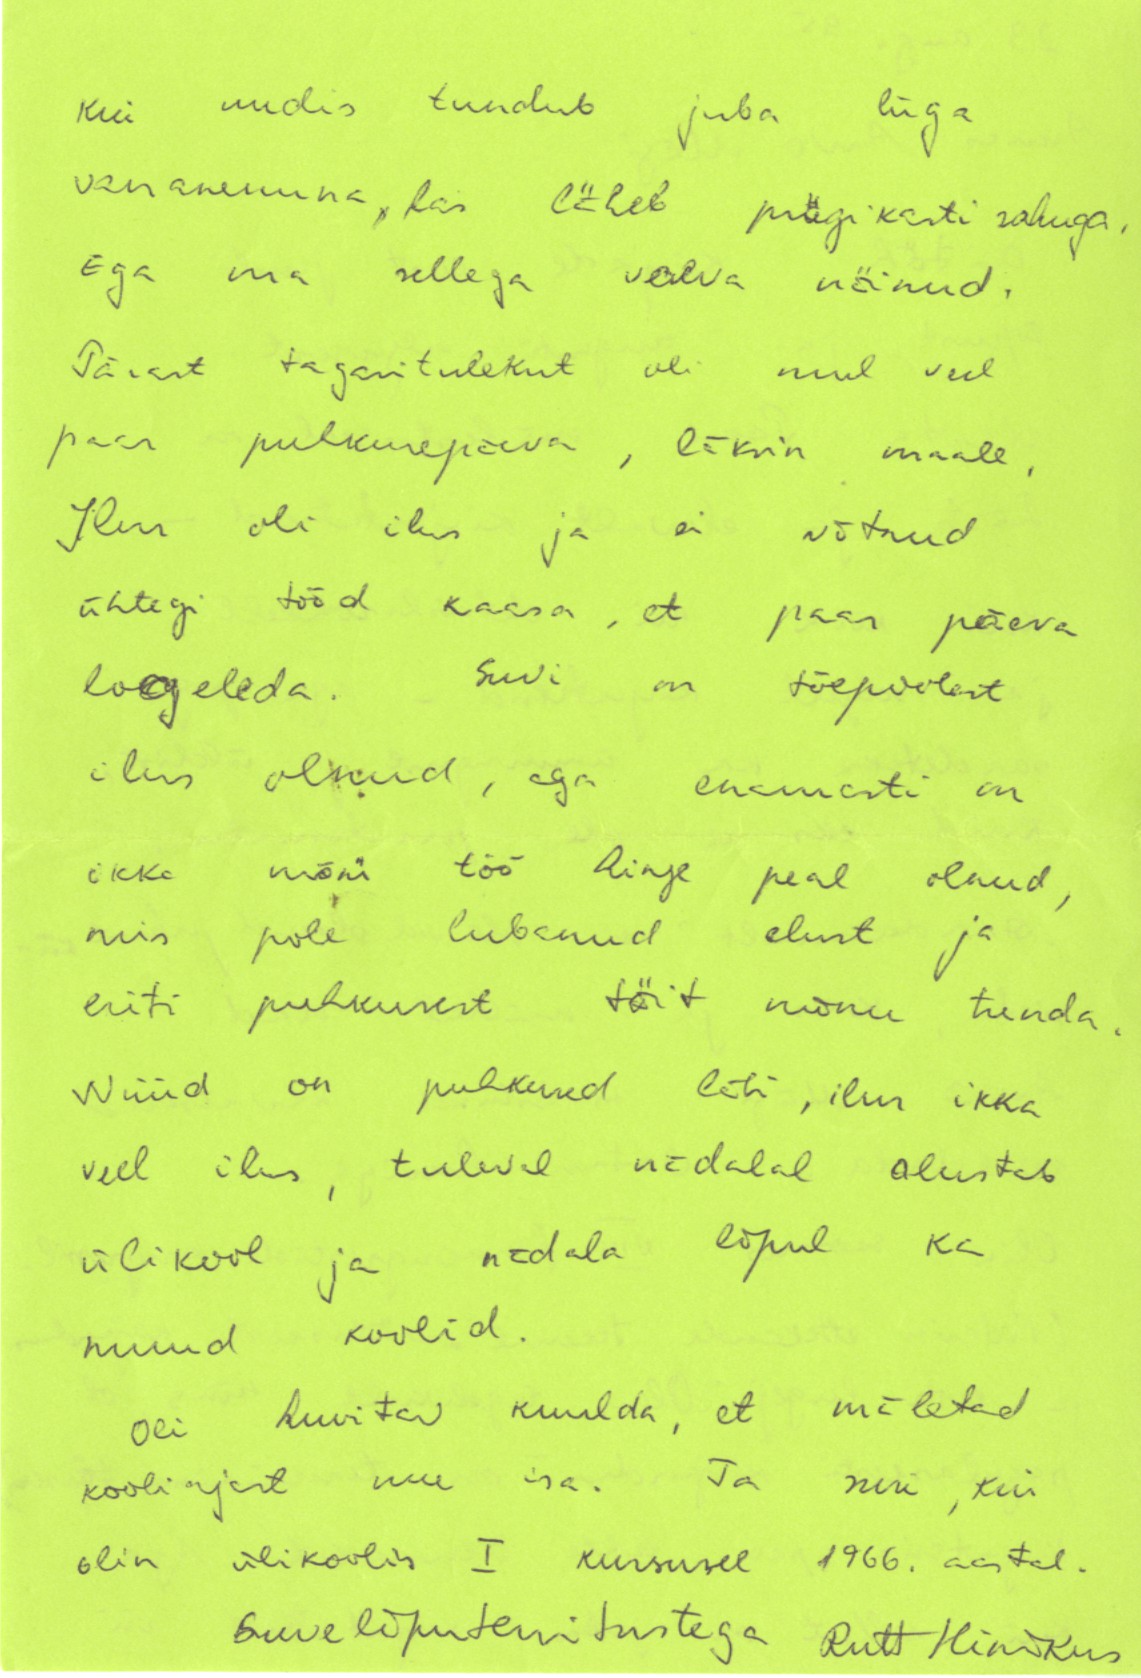 Kui uudis tundub juba liiga
vananenuna, las läheb prügikasti rahuga.
Ega ma sellega vaeva näinud.
Pärast tagasitulekut oli mul veel
paar puhkusepäeva, läksin maale,
Ilm oli ilus ja ei võtnud
ühtegi tööd kaasa, et paar päeva
loogeleda. Suvi on tõepoolest
ilus olnud, aga enamasti on
ikka mõni töö hinge peal olnud,
mis pole lubanud elust ja
eriti puhkusest täit mõnu tunda.
Nüüd on puhkused läbi, ilm ikka
veel ilus, tuleval nädalal alustab
ülikool ja nädala lõpul ka
muud koolid.
Oli huvitav kuulda, et mäletad
kooliajast mu isa. Ta suri, kui
olin ülikoolis I kursusel 1966. aastal.
Suvelõputervitustega Rutt Hinrikus